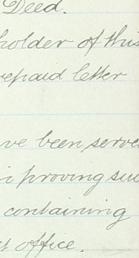 Deed.
holder of this
repaid letter
ve been serve
proving su
containing
t office.